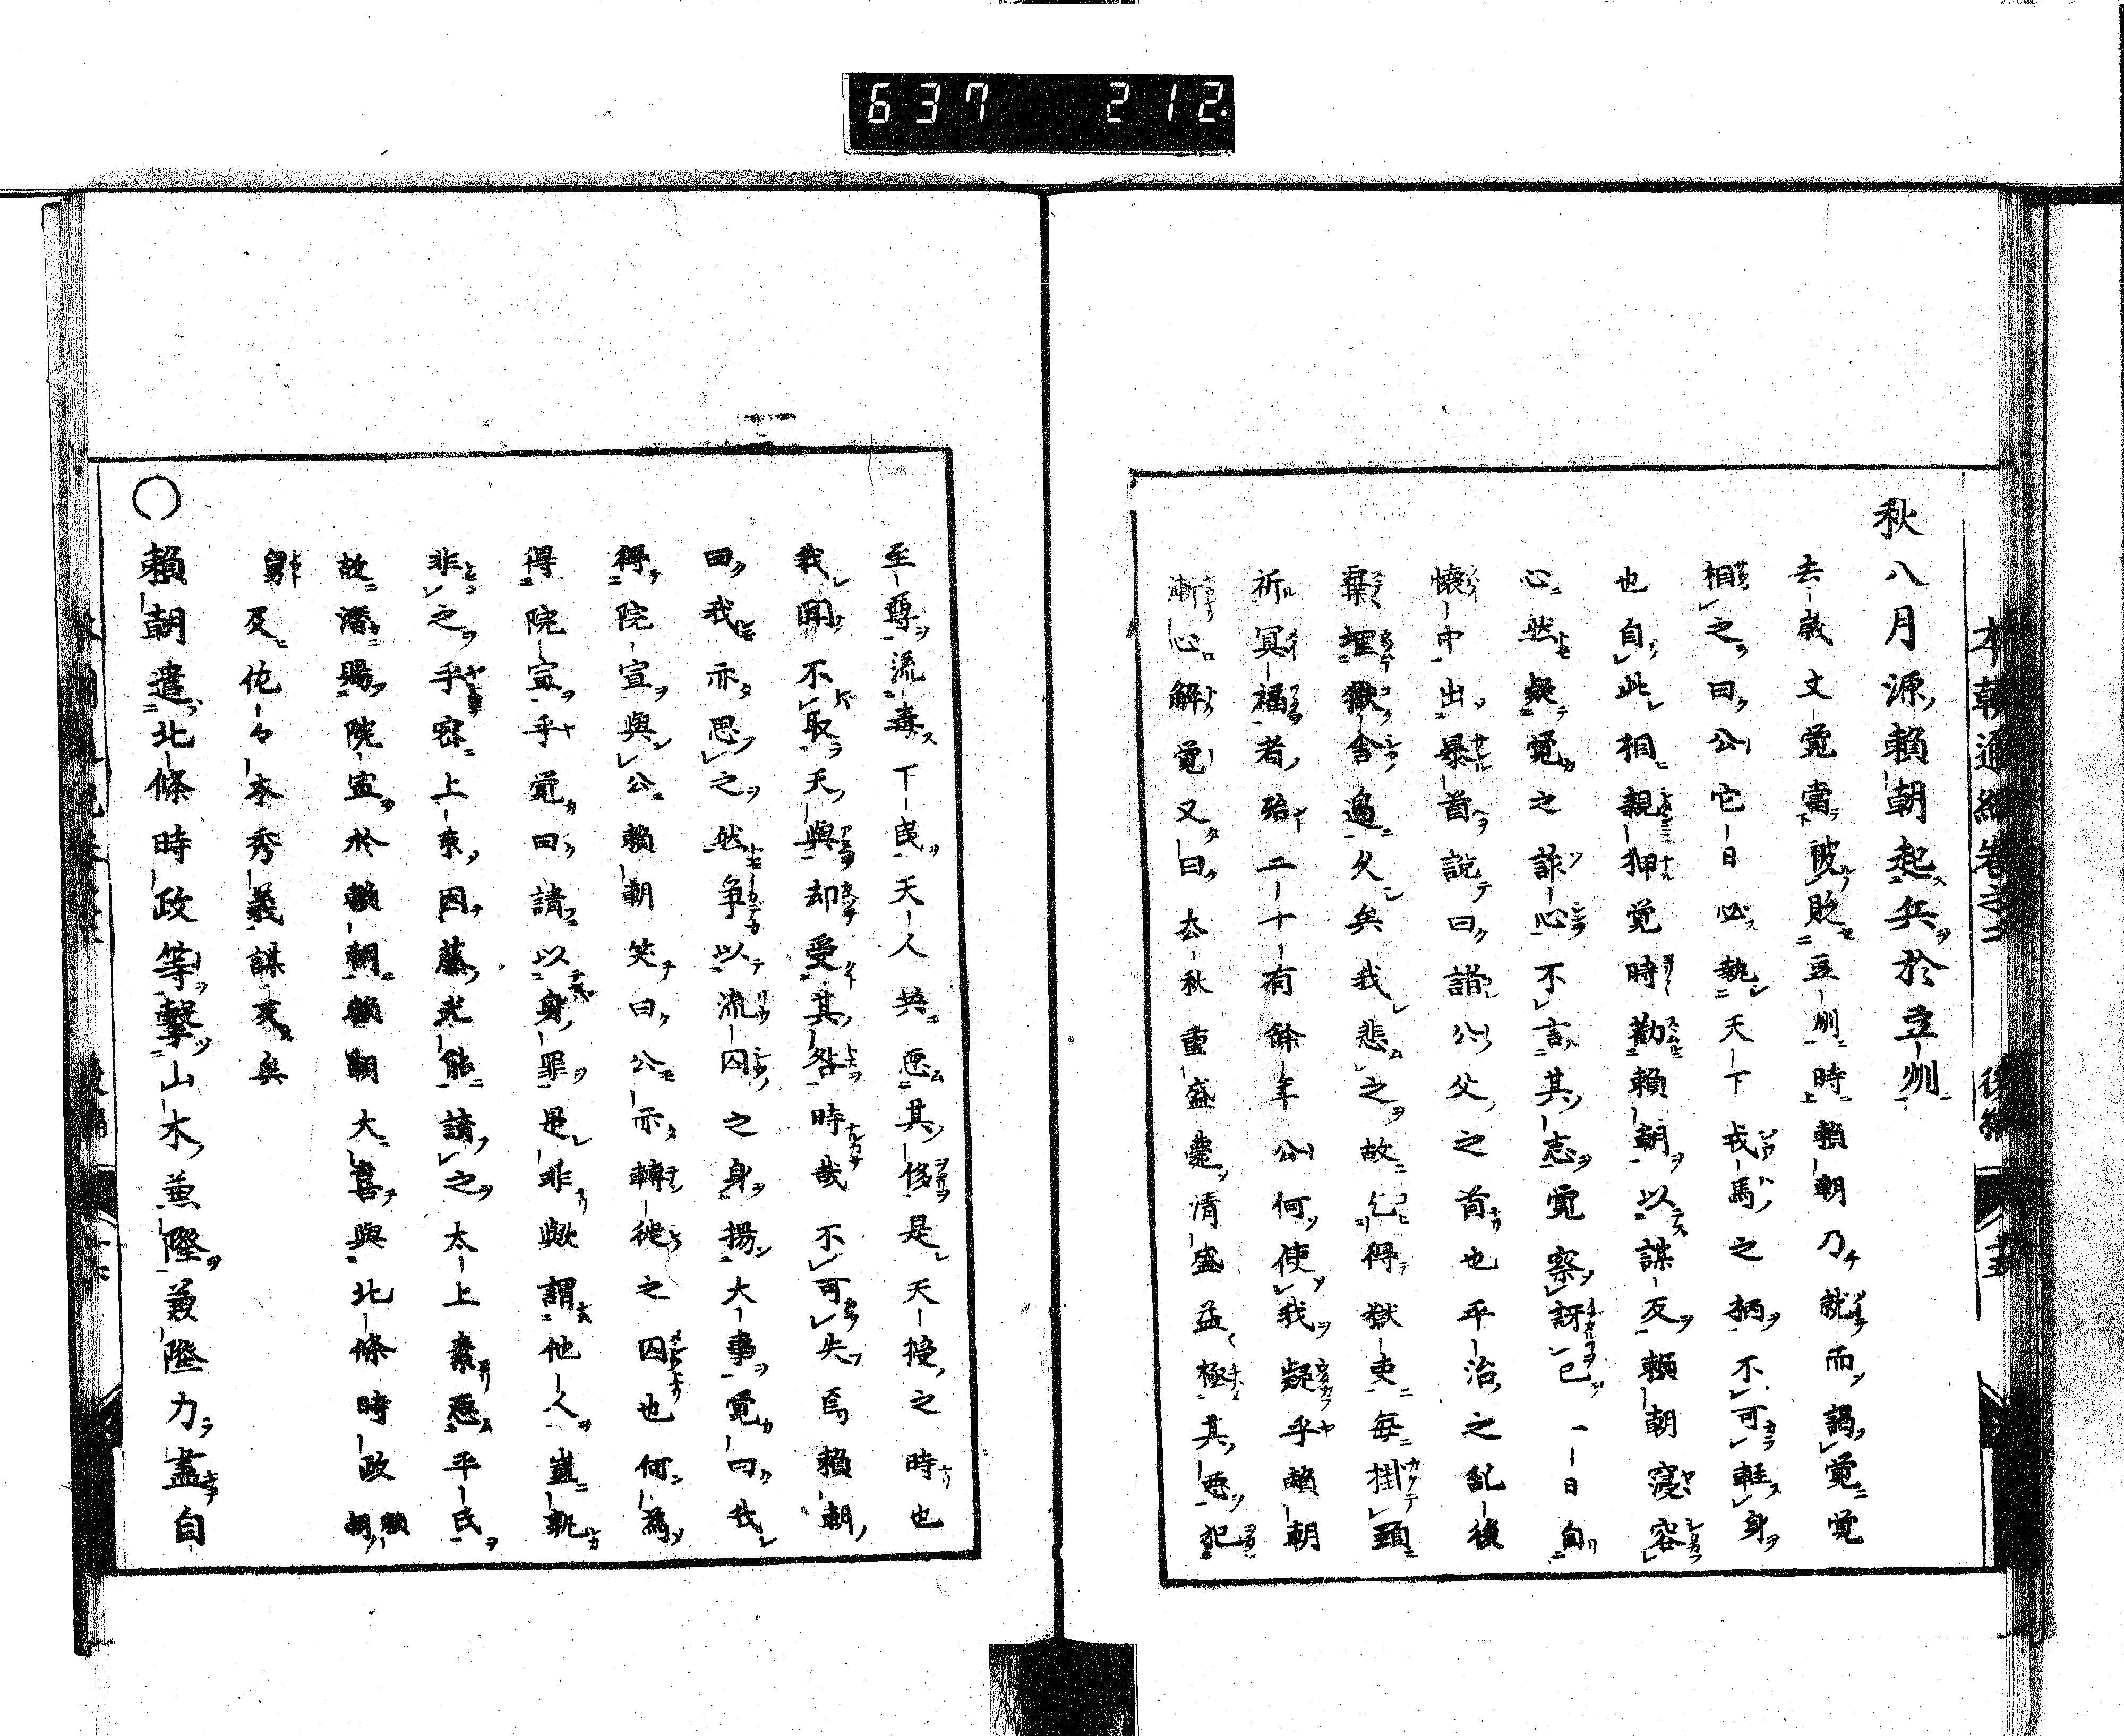 637 212.
本朝通紀卷之二 後編 十五
秋八月源賴朝起兵於豆州
去歲文覺當被貶豆州時賴朝乃就而謁覺覺
相之曰公它日必執天下戎馬之柄不可輕身
也自此相親狎覺時勸賴朝以謀反賴朝寖容
心然疑覺之詐心不言其志覺察訝已一日自
懷中出暴首説曰諸公父之首也平治之乱後
棄埋獄舍邉久矣我悲之故乞得獄吏毎掛頸
祈冥福者殆二十有餘年公何使我疑乎賴朝
漸心解覺又曰去秋重盛薨清盛益極其惡犯
至尊流毒下民天人共惡其侈是天授之時也
我聞不取天與却受其咎時哉不可失焉賴朝
曰我亦思之然争以流囚之身揚大事覺曰我
得院宣與公賴朝笑曰公亦轉徙之囚也何為
得院宣乎覺曰請以身罪是非歟謂他人豈輒
非之乎密上京因藤光能請之太上素惡平氏
故潛賜院宣於賴朝賴朝大喜與北條時政賴朝
舅及佐々木秀義謀反矣
〇賴朝遣北條時政等擊山木兼隆兼隆力盡自